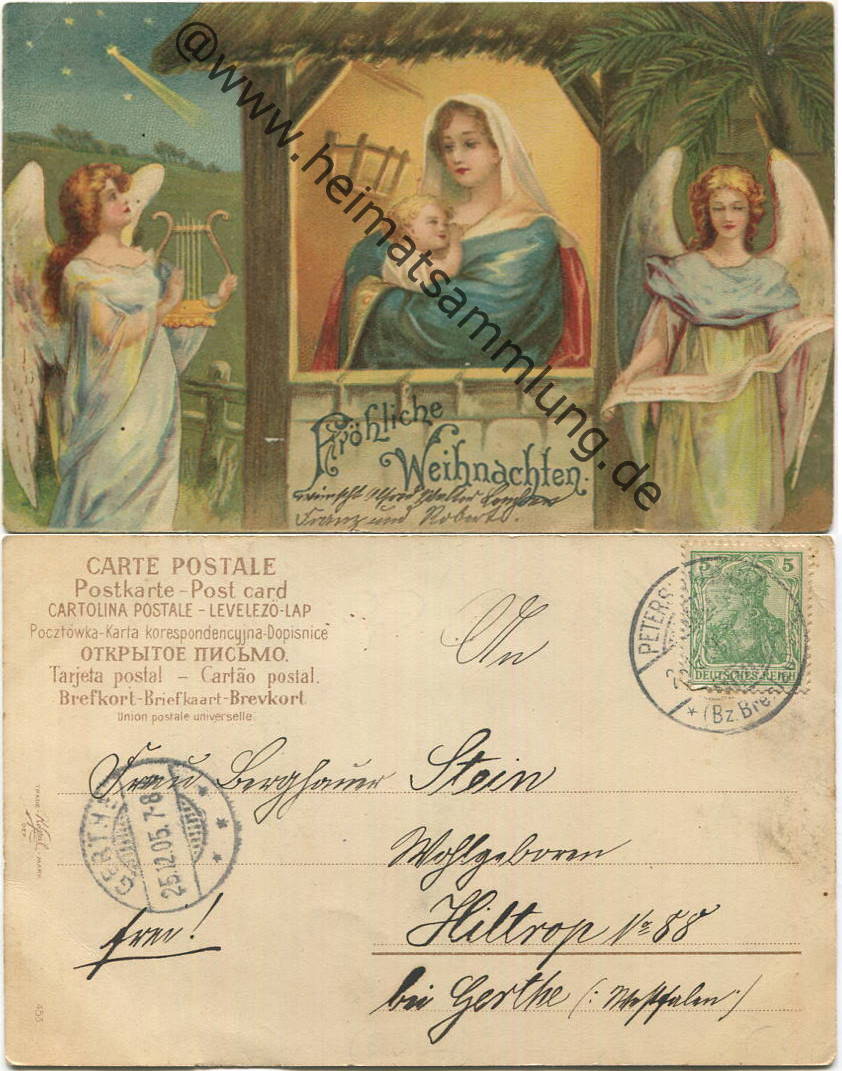 @www.heimatsammlung.de
Fröhliche
Weihnachten.
wünscht Alfred Walter
Franz und Robert.
CARTE POSTALE
Postkarte - Post card
CARTOLINA POSTALE - LEVELEZÖ-LAP
Pocztówka-Karta korespondencyjna-Dopisnice
ОТКРЫТОЕ ПИСЬМО.
Tarjeta postal - Cartão postal.
Brefkort-Briefkaart-Brevkort
Union postale universelle.
5 5
DEUTSCHES REICH
PETERS
* (Bz. Bre
An
Frau Berghauer Stein
Wohlgeboren
Hiltrop No 88
bei Gerthe (: Westfalen :)
frei!
GERTHE
25.12.05. 7-8
TRADE MARK